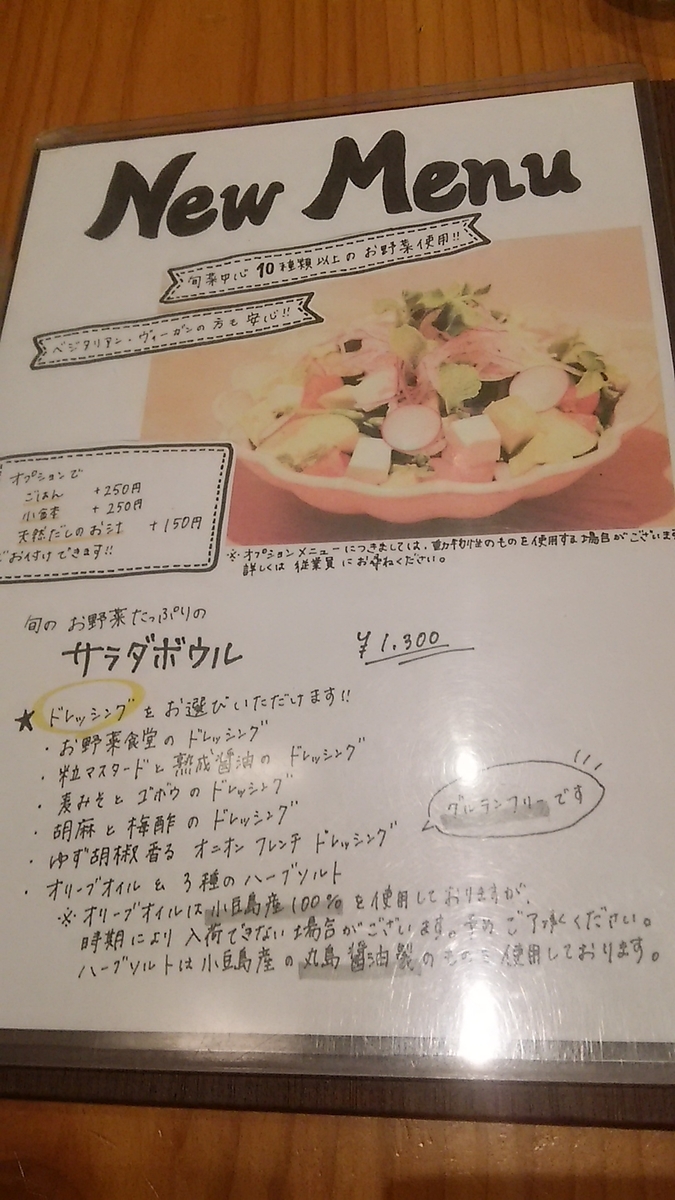 New Menu
旬菜中心 10種類以上のお野菜使用!!
ベジタリアン・ヴィーガンの方も安心!!
オプションで
ごはん +250円
小鉢 +250円
天然だしのお汁 +150円
お付けできます!!
※オプションメニューにつきましては、動物性のものを使用する場合がございます
詳しくは従業員にお尋ねください。
旬のお野菜たっぷりの
サラダボウル ¥1,300
★ドレッシングをお選びいただけます!!
・お野菜食堂のドレッシング
・粒マスタードと熟成醤油のドレッシング
・麦みそとゴボウのドレッシング
・胡麻と梅酢のドレッシング
・ゆず胡椒香るオニオンフレンチドレッシング
・オリーブオイル&3種のハーブソルト
グルテンフリーです
※オリーブオイルは小豆島産100%を使用しておりますが、
時期により入荷できない場合がございます。予めご了承ください。
ハーブソルトは小豆島産の丸島醤油製のものを使用しております。